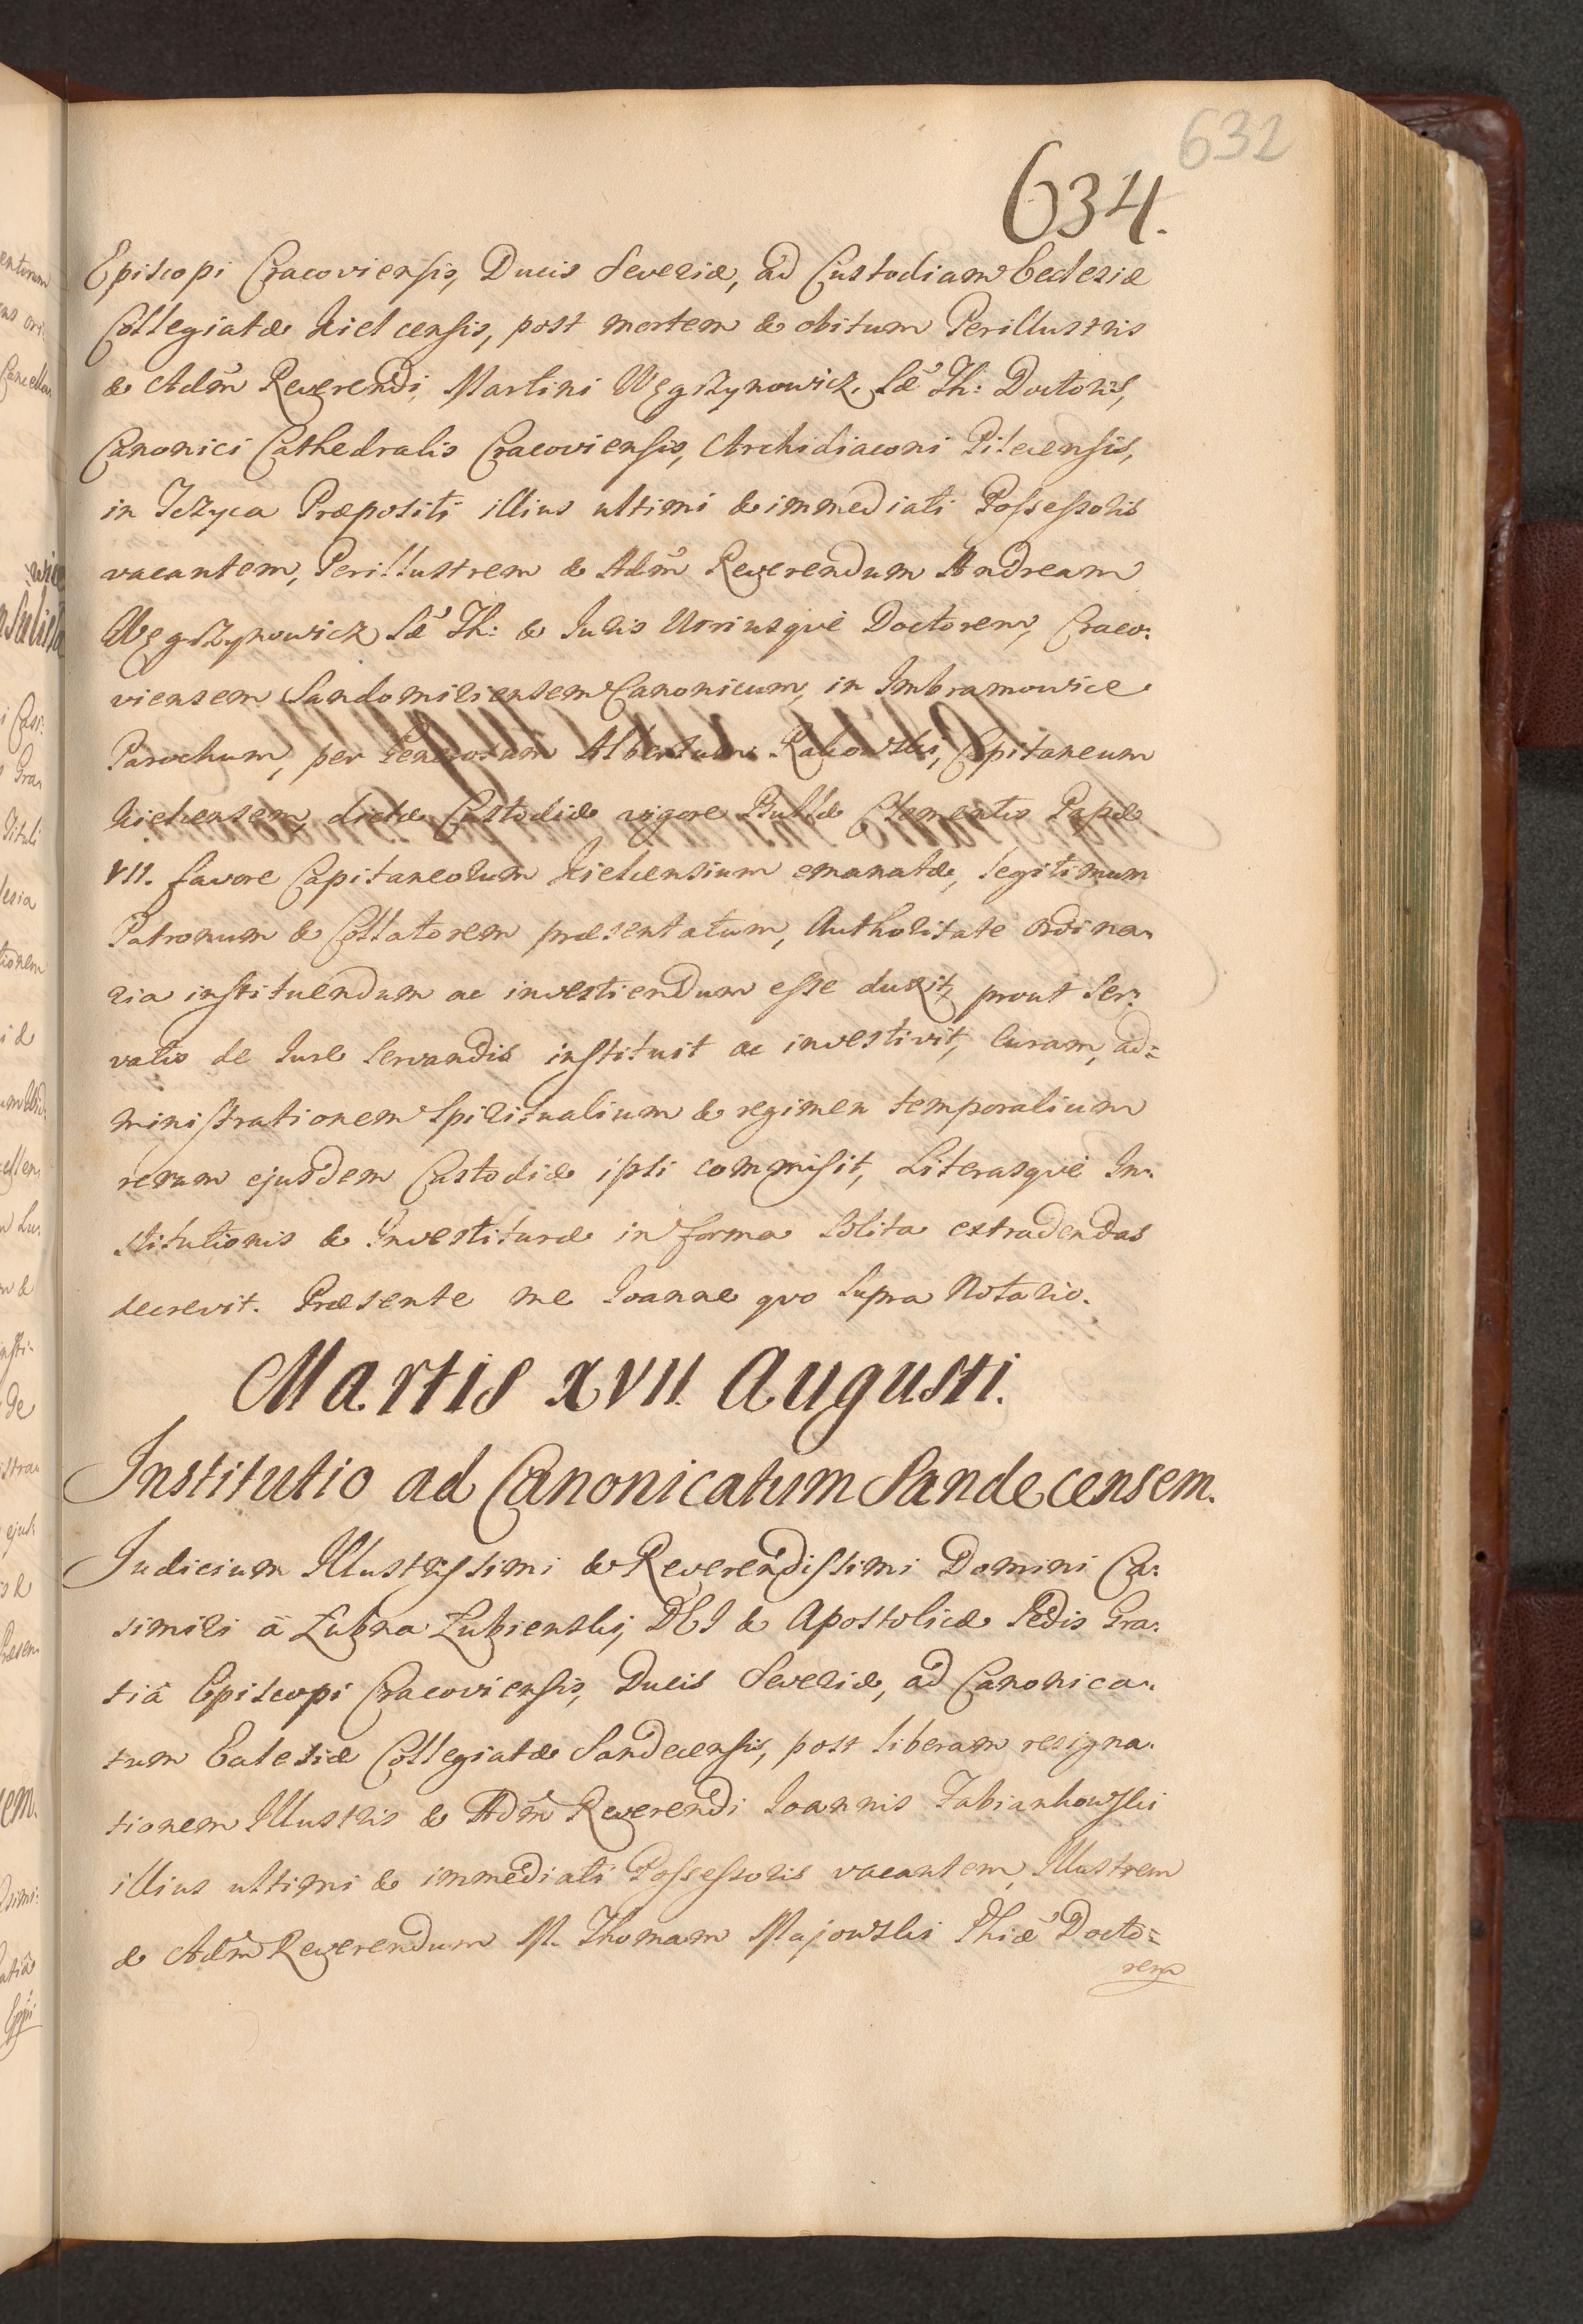 632
634.
Episcopi Cracoviensis, Ducis Severiæ, ad Custodiam Ecclesiæ
Collegiatæ Kielcensis, post mortem & obitum Perillustris
& Adm̃ Reverendi Martini Węgrzynowicz, Sæ Th: Doctoris,
Canonici Cathedralis Cracoviensis, Archidiaconi Pilecensis,
in Præpositi illius ultimi & immediati Possessoris
vacantem, Perillustrem & Adm̃ Reverendum Andream
Węgrzynowicz Sæ Th: & Juris Utriusque Doctorem, Craco:
viensem Sandomiriensem Canonicum, in Imbramowice
Parochum, per Generosum Albertum Capitaneum
Kielcensem, dictæ Custodiæ vigore Bullæ Clementis Papæ
VII. favore Capitaneorum Kielcensium emanatæ, legitimum
Patronum & Collatorem præsentatum, Authoritate ordina:
ria instituendum ac investiendum esse duxit, prout ser:
vatis de Jure servandis instituit ac investivit, Curam, ad=
ministrationem Spiritualium & regimen temporalium
rerum ejusdem Custodiæ ipsi commisit, Literasque In:
stitutionis & Investituræ in forma solita extradendas
decrevit. Præsente me Joanne quo supra Notario.
Martis XVII. Augusti.
Institutio ad Canonicatum Sandecensem.
Judicium Illustrissimi & Reverendissimi Domini Ca:
simiri à Łubna Łubienski, DEI & Apostolicæ Sedis Gra:
tiâ Episcopi Cracoviensis, Ducis Severiæ, ad Canonica:
tum Eclesiæ Collegiatæ Sandecensis, post liberam resigna:
tionem Illustris & Adm̃ Reverendi Joannis Fabiankowski
illius ultimi & immediati Possessoris vacantem, Illustrem
& Adm̃ Reverendum M. Thomam Majowski Phiæ Docto=
rem